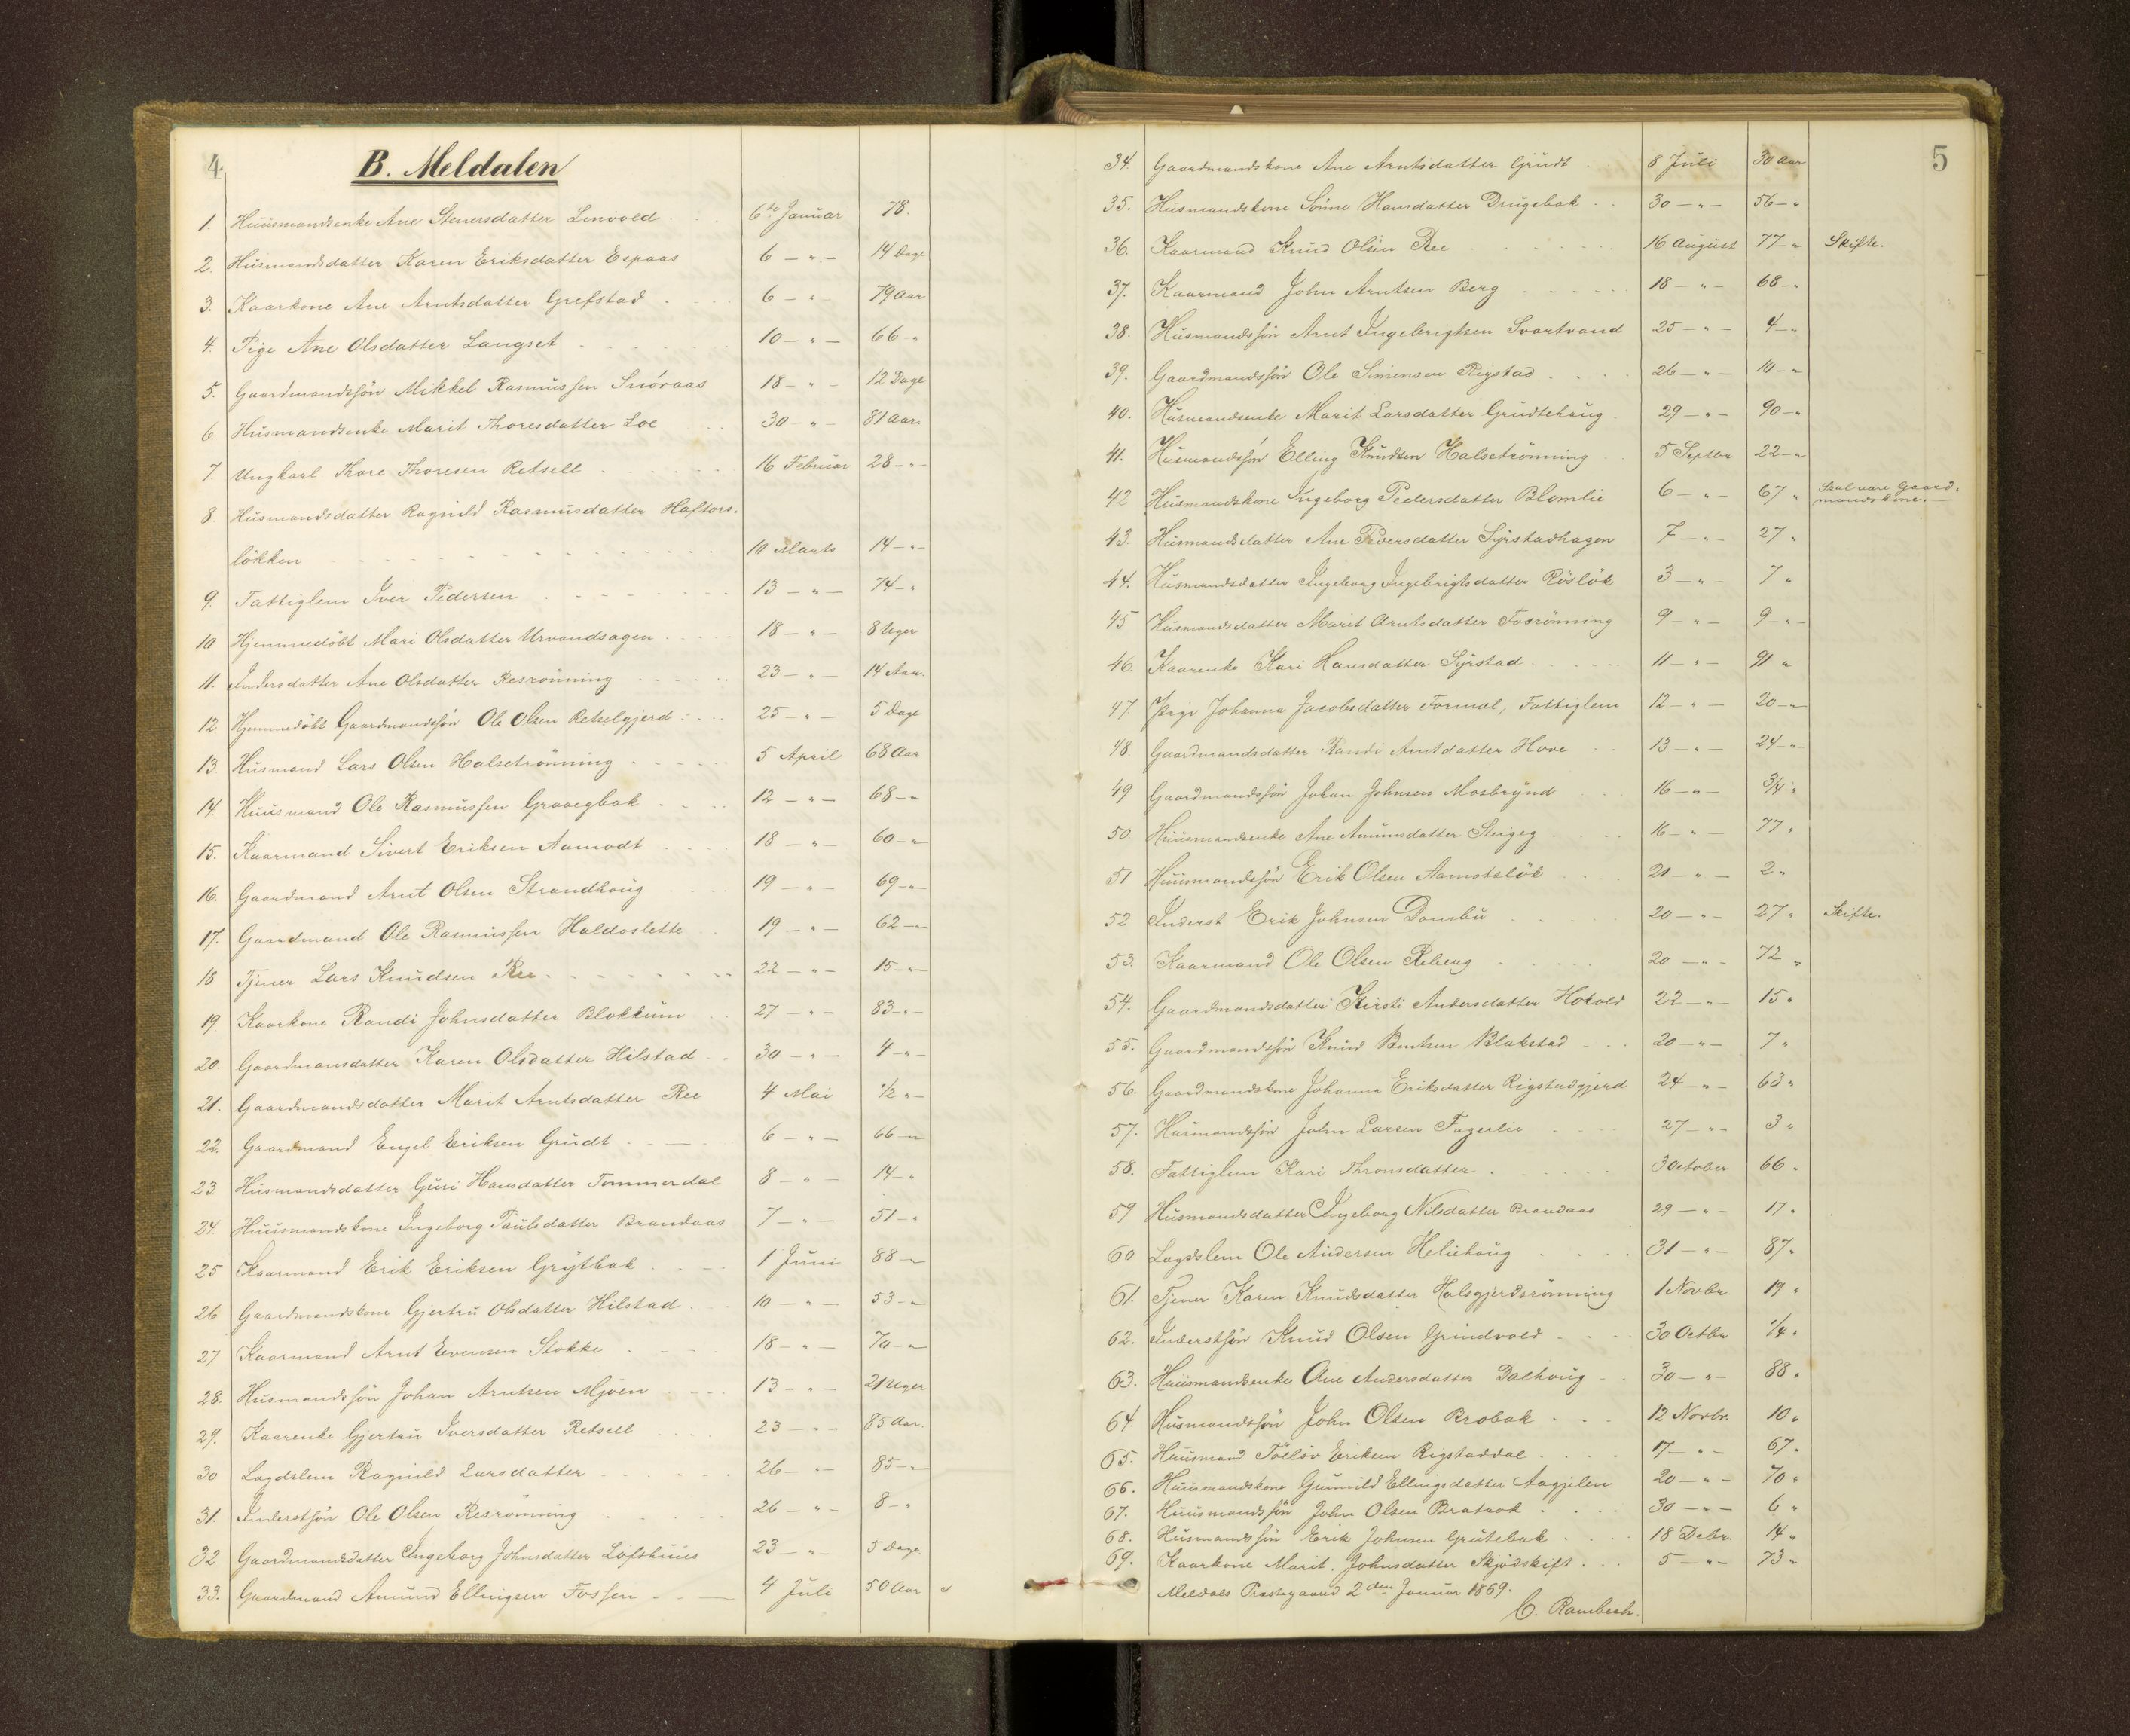 4
B. Meldalen
1. Huusmandsenke Ane Stenersdatter Linvold 6te Januar 78.
2. Husmandsdatter Karen Eriksdatter Espaas 6 — " — 14 Dage
3. Kaarkone Ane Arntsdatter Grefstad 6 — " — 79 Aar
4. Pige Ane Olsdatter Langset 10 — " — 66 — "
5. Gaardmandssön Mikkel Rasmussen Snöraas 18 — " — 12 Dage
6. Husmandsenke Marit Thoresdatter Loe 30 — " — 81 Aar.
7. Ungkarl Thore Thoresen Retsell 16 Februar 28 — " —
8. Husmandsdatter Ragnild Rasmusdatter Haftors.
lökken 10 Marts 14 — " —
9. Fattiglem Iver Pedersen 13 — " — 74 — "
10 Hjemmedöbt Mari Olsdatter Urvandsagen 18 — " — 8 Uger
11. Indersdatter Ane Olsdatter Resrönning 23 — " — 14 Aar.
12 Hjemmedöbt Gaardmandssön Ole Olsen Retselgjerd 25 — " — 5 Dage
13. Husmand Lars Olsen Halsetrönning 5 April 68 Aar
14. Huusmand Ole Rasmussen Graaegbak 12 — " — 68 — "
15. Kaarmand Sivert Eriksen Aamodt 18 — " — 60 — "
16. Gaardmand Arnt Olsen Strandhoug 19 — " — 69 — "
17. Gaardmand Ole Rasmussen Haldoslette 19 — " — 62 — "
18 Tjener Lars Knudsen Ree 22 — " — 15 — "
19 Kaarkone Randi Johnsdatter Blokkum 27 — " — 83 — " —
20. Gaardmansdatter Karen Olsdatter Hilstad 30 — " — 4 — " —
21. Gaardmandsdatter Marit Arntsdatter Ree 4 Mai 1/2 " —
22. Gaardmand Engel Eriksen Grudt 6 — " — 66 — "
23 Husmandsdatter Guri Hansdatter Tommerdal 8 — " — 14 — "
24. Huusmandskone Ingeborg Paulsdatter Brandaas 7 — " — 51 — "
25 Kaarmand Erik Eriksen Grytbak 1 Juni 88 — "
26 Gaardmandskone Gjertru Olsdatter Hilstad 10 — " — 53 — "
27 Kaarmand Arnt Evensen Stokke 18 — " — 70 — "
28. Husmandssön Johan Arntsen Mjöen 13 — " — 21 Uger
29. Kaarenke Gjertru Iversdatter Retsell 23 — " — 85 Aar.
30 Lagdslem Ragnild Larsdatter 26 — " — 85 — "
31. Inderstsön Ole Olsen Resrönning 26 — " — 8 — "
32 Gaardmandsdatter Ingeborg Johnsdatter Löfshuus 23 — " — 5 Dage
33. Gaardmand Amund Ellingsen Fossen 4 Juli 50 Aar
5
34. Gaardmandskone Ane Arntsdatter Grudt 8 Juli 30 Aar
35. Husmandskone Sönne Hansdatter Drugebak 30 — " — 56 — "
36. Kaarmand Knud Olsen Ree 16 August 77 — " Skifte.
37. Kaarmand John Arntsen Berg 18 — " — 68 — "
38. Husmandssön Arnt Ingebrigtsen Svartvand 25 — " — 4 — "
39. Gaardmandssön Ole Simensen Rigstad 26 — " — 10 — "
40. Husmandsenke Marit Larsdatter Grudtehaug 29 — " — 90 — "
41. Husmandssön Elling Knudsen Halsetrönning 5 Septbr 22 — "
42 Husmandskone Ingeborg Pedersdatter Blomlie 6 — " — 67 " Skal være Gaard-
mandskone.
43. Husmandsdatter Ane Iversdatter Syrstadhagen 7 — " — 27 "
44. Husmandsdatter Ingeborg Ingebrigtsdatter Röslök 3 — " — 7 "
45 Husmandsdatter Marit Arntsdatter Fosrönning 9 — " — 9 — " —
46. Kaarenke Kari Hansdatter Syrstad 11 — " — 91 "
47. Pige Johanna Jacobsdatter Formal, Fattiglem 12 — " — 20 — "
48. Gaardmandsdatter Randi Arntdatter Hove 13 — " — 24 — " —
49 Gaardmandssön Johan Johnsen Mosbrynd 16 — " — 3/4 "
50. Huusmandsenke Ane Amunsdatter Steigeg 16 — " — 77 "
51 Huusmandssön Erik Olsen Aamotslök 21 — " — 2 "
52 Inderst Erik Johnsen Dombu 20 — " — 27 " Skifte.
53. Kaarmand Ole Olsen Reberg 20 — " — 72 "
54. Gaardmandsdatter Kirsti Andersdatter Hotvold 22 — " — 15 "
55. Gaardmandssön Knud Bentsen Blakstad 20 — " — 7 "
56. Gaardmandskone Johanna Eriksdatter Rigstadgjerd 24 — " — 63 "
57. Husmandssön John Larsen Fagerlie 27 — " — 3 "
58. Fattiglem Kari Thronsdatter 3 October 66 "
59 Husmandsdatter Ingeborg Nilsdatter Brandaas 29 — " — 17 "
60 Lagdslem Ole Andersen Heliehoug 31 — " — 87 "
61. Tjener Karen Knudsdatter Halsgjerdsrönning 1 Novbr 19 "
62. Inderstsön Knud Olsen Grindvold 30 Octbr 1/4 "
63. Huusmandsenke Ane Andersdatter Dalhoug 30 — " — 88 "
64 Husmandssön John Olsen Brobak 12 Novbr. 10 "
65. Huusmand Tölløv Eriksen Rigstaddal 17 — " — 67 "
66. Huusmandskone Gunnild Ellingsdatter Aagjelen 20 — " — 70 "
67. Huusmandssön John Olsen Bratrok 30 — " — 6 "
68. Husmandssön Erik Johnsen Grutebak 18 Debr. 14 "
69. Kaarkone Marit Johnsdatter Skjödskift 5 — " — 73 "
Meldals Prestegaard 2den Januar 1869.
C. Rambech.